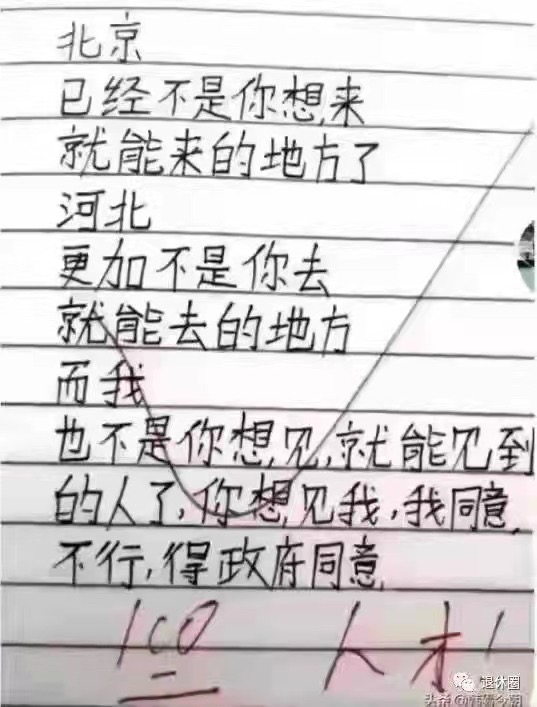 北京
已经不是你想来
就能来的地方了
河北
更加不是你去
就能去的地方
而我
也不是你想见,就能见到
的人了,你想见我,我同意
不行,得政府同意
100 人才!
退休圈